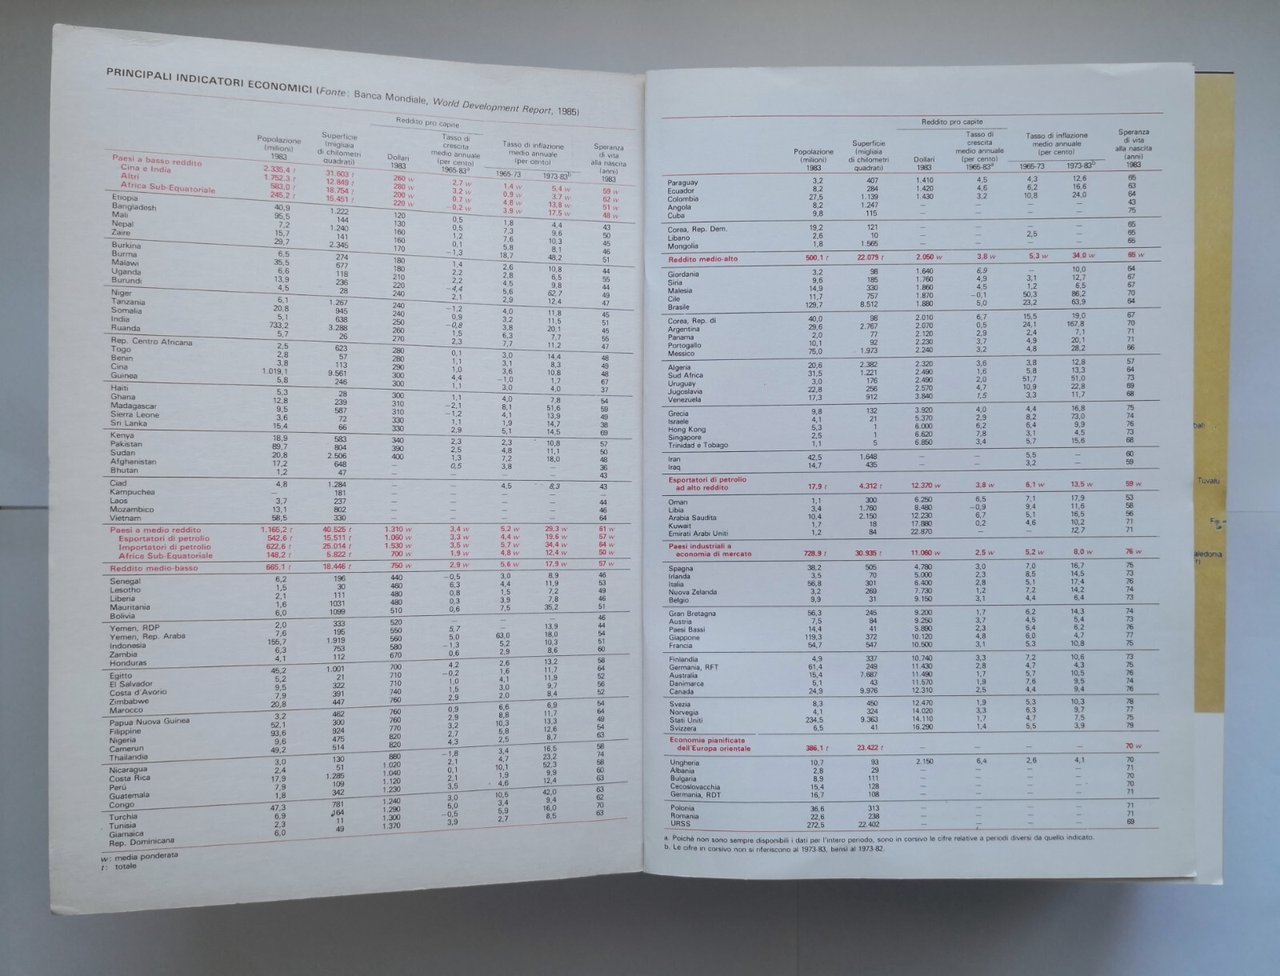 PRINCIPALI INDICATORI ECONOMICI (Fonte: Banca Mondiale, World Development Report, 1985)
Reddito pro capite
Popolazione (milioni) 1983
Superficie (migliaia di chilometri quadrati)
Dollari 1983
Tasso di crescita medio annuale (per cento) 1965-83a
Tasso di inflazione medio annuale (per cento)
1965-73 1973-83b
Speranza di vita alla nascita (anni) 1983
Paesi a basso reddito 2.335,4 t 31.603 t 260 w 2,7 w 1,4 w 5,4 w 59 w
Cina e India 1.752,3 t 12.849 t 280 w 3,2 w 0,9 w 3,7 w 62 w
Altri 583,0 t 18.754 t 200 w 0,7 w 4,8 w 13,8 w 51 w
Africa Sub-Equatoriale 245,2 t 15.451 t 220 w -0,2 w 3,9 w 17,5 w 48 w
Etiopia 40,9 1.222 120 0,5 1,8 4,4 43
Bangladesh 95,5 144 130 0,5 7,3 9,6 50
Mali 7,2 1.240 160 1,2 7,6 10,3 45
Nepal 15,7 141 160 0,1 5,8 8,1 46
Zaire 29,7 2.345 170 -1,3 18,7 48,2 51
Burkina 6,5 274 180 1,4 2,6 10,8 44
Burma 35,5 677 180 2,2 2,8 6,5 55
Malawi 6,6 118 210 2,2 4,5 9,8 44
Uganda 13,9 236 220 -4,4 5,6 62,7 49
Burundi 4,5 28 240 2,1 2,9 12,4 47
Niger 6,1 1.267 240 -1,2 4,0 11,8 45
Tanzania 20,8 945 240 0,9 3,2 11,5 51
Somalia 5,1 638 250 -0,8 3,8 20,1 45
India 733,2 3.288 260 1,5 6,3 7,7 55
Ruanda 5,7 26 270 2,3 7,7 11,2 47
Rep. Centro Africana 2,5 623 280 0,1 3,0 14,4 48
Togo 2,8 57 280 1,1 3,1 8,3 49
Benin 3,8 113 290 1,0 3,6 10,8 48
Cina 1.019,1 9.561 300 4,4 -1,0 1,7 67
Guinea 5,8 246 300 1,1 3,0 4,0 37
Haiti 5,3 28 300 1,1 4,0 7,8 54
Ghana 12,8 239 310 -2,1 8,1 51,6 59
Madagascar 9,5 587 310 -1,2 4,1 13,9 49
Sierra Leone 3,6 72 330 1,1 1,9 14,7 38
Sri Lanka 15,4 66 330 2,9 5,1 14,5 69
Kenya 18,9 583 340 2,3 2,3 10,8 57
Pakistan 89,7 804 390 2,5 4,8 11,1 50
Sudan 20,8 2.506 400 1,3 7,2 18,0 48
Afghanistan 17,2 648 — 0,5 3,8 — 36
Bhutan 1,2 47 — — — — 43
Ciad 4,8 1.284 — — 4,5 8,3 43
Kampuchea — 181 — — — —
Laos 3,7 237 — — — — 44
Mozambico 13,1 802 — — — — 46
Vietnam 58,5 330 — — — — 64
Paesi a medio reddito 1.165,2 t 40.525 t 1.310 w 3,4 w 5,2 w 29,3 w 61 w
Esportatori di petrolio 542,6 t 15.511 t 1.060 w 3,3 w 4,4 w 19,6 w 57 w
Importatori di petrolio 622,6 t 25.014 t 1.530 w 3,5 w 5,7 w 34,4 w 64 w
Africa Sub-Equatoriale 148,2 t 5.822 t 700 w 1,9 w 4,8 w 12,4 w 50 w
Reddito medio-basso 665,1 t 18.446 t 750 w 2,9 w 5,6 w 17,9 w 57 w
Senegal 6,2 196 440 -0,5 3,0 8,9 46
Lesotho 1,5 30 460 6,3 4,4 11,9 53
Liberia 2,1 111 480 0,8 1,5 7,2 49
Mauritania 1,6 1031 480 0,3 3,9 7,8 46
Bolivia 6,0 1099 510 0,6 7,5 35,2 51
Yemen, RDP 2,0 333 520 — — — 46
Yemen, Rep. Araba 7,6 195 550 5,7 — 13,9 44
Indonesia 155,7 1.919 560 5,0 63,0 18,0 54
Zambia 6,3 753 580 -1,3 5,2 10,3 51
Honduras 4,1 112 670 0,6 2,9 8,6 60
Egitto 45,2 1.001 700 4,2 2,6 13,2 58
El Salvador 5,2 21 710 -0,2 1,6 11,7 64
Costa d'Avorio 9,5 322 710 1,0 4,1 11,9 52
Zimbabwe 7,9 391 740 1,5 3,0 9,7 56
Marocco 20,8 447 760 2,9 2,0 8,4 52
Papua Nuova Guinea 3,2 462 760 0,9 6,6 6,9 54
Filippine 52,1 300 760 2,9 8,8 11,7 64
Nigeria 93,6 924 770 3,2 10,3 13,3 49
Camerun 9,6 475 820 2,7 5,8 12,6 54
Thailandia 49,2 514 820 4,3 2,5 8,7 63
Nicaragua 3,0 130 880 -1,8 3,4 16,5 58
Costa Rica 2,4 51 1.020 2,1 4,7 23,2 74
Perù 17,9 1.285 1.040 0,1 10,1 52,3 58
Guatemala 7,9 109 1.120 2,1 1,9 9,9 60
Congo 1,8 342 1.230 3,5 4,6 12,4 63
Turchia 47,3 781 1.240 3,0 10,5 42,0 63
Tunisia 6,9 164 1.290 5,0 3,4 9,4 62
Giamaica 2,3 11 1.300 -0,5 5,9 16,0 70
Rep. Dominicana 6,0 49 1.370 3,9 2,7 8,5 63
w: media ponderata
t: totale
Reddito pro capite
Popolazione (milioni) 1983
Superficie (migliaia di chilometri quadrati)
Dollari 1983
Tasso di crescita medio annuale (per cento) 1965-83a
Tasso di inflazione medio annuale (per cento)
1965-73 1973-83b
Speranza di vita alla nascita (anni) 1983
Paraguay 3,2 407 1.410 4,5 4,3 12,6 65
Ecuador 8,2 284 1.420 4,6 6,2 16,6 63
Colombia 27,5 1.139 1.430 3,2 10,8 24,0 64
Angola 8,2 1.247 — — — — 43
Cuba 9,8 115 — — — — 75
Corea, Rep. Dem. 19,2 121 — — — — 65
Libano 2,6 10 — — 2,5 — 65
Mongolia 1,8 1.565 — — — — 65
Reddito medio-alto 500,1 t 22.079 t 2.050 w 3,8 w 5,3 w 34,0 w 65 w
Giordania 3,2 98 1.640 6,9 — 10,0 64
Siria 9,6 185 1.760 4,9 3,1 12,7 67
Malesia 14,9 330 1.860 4,5 1,2 6,5 67
Cile 11,7 757 1.870 -0,1 50,3 86,2 70
Brasile 129,7 8.512 1.880 5,0 23,2 63,9 64
Corea, Rep. di 40,0 98 2.010 6,7 15,5 19,0 67
Argentina 29,6 2.767 2.070 0,5 24,1 167,8 70
Panama 2,0 77 2.120 2,9 2,4 7,1 71
Portogallo 10,1 92 2.230 3,7 4,9 20,1 71
Messico 75,0 1.973 2.240 3,2 4,8 28,2 66
Algeria 20,6 2.382 2.320 3,6 3,8 12,8 57
Sud Africa 31,5 1.221 2.490 1,6 5,8 13,3 64
Uruguay 3,0 176 2.490 2,0 51,7 51,0 73
Jugoslavia 22,8 256 2.570 4,7 10,9 22,8 69
Venezuela 17,3 912 3.840 1,5 3,3 11,7 68
Grecia 9,8 132 3.920 4,0 4,4 16,8 75
Israele 4,1 21 5.370 2,9 8,2 73,0 74
Hong Kong 5,3 1 6.000 6,2 6,4 9,9 76
Singapore 2,5 1 6.620 7,8 3,1 4,5 73
Trinidad e Tobago 1,1 5 6.850 3,4 5,7 15,6 68
Iran 42,5 1.648 — — 5,5 — 60
Iraq 14,7 435 — — 3,2 — 59
Esportatori di petrolio
ad alto reddito 17,9 t 4.312 t 12.370 w 3,8 w 6,1 w 13,5 w 59 w
Oman 1,1 300 6.250 6,5 7,1 17,9 53
Libia 3,4 1.760 8.480 -0,9 9,4 11,6 58
Arabia Saudita 10,4 2.150 12.230 6,7 5,1 16,5 56
Kuwait 1,7 18 17.880 0,2 4,6 10,2 71
Emirati Arabi Uniti 1,2 84 22.870 — — 12,7 71
Paesi industriali a
economia di mercato 728,9 t 30.935 t 11.060 w 2,5 w 5,2 w 8,0 w 76 w
Spagna 38,2 505 4.780 3,0 7,0 16,7 75
Irlanda 3,5 70 5.000 2,3 8,5 14,5 73
Italia 56,8 301 6.400 2,8 5,1 17,4 76
Nuova Zelanda 3,2 269 7.730 1,2 7,2 14,2 74
Belgio 9,9 31 9.150 3,1 4,4 6,4 73
Gran Bretagna 56,3 245 9.200 1,7 6,2 14,3 74
Austria 7,5 84 9.250 3,7 4,5 5,4 73
Paesi Bassi 14,4 41 9.890 2,3 6,4 6,2 76
Giappone 119,3 372 10.120 4,8 6,0 4,7 77
Francia 54,7 547 10.500 3,1 5,3 10,8 75
Finlandia 4,9 337 10.740 3,3 7,2 10,6 73
Germania, RFT 61,4 249 11.430 2,8 4,7 4,3 75
Australia 15,4 7.687 11.490 1,7 5,7 10,5 76
Danimarca 5,1 43 11.570 1,9 7,6 9,5 74
Canada 24,9 9.976 12.310 2,5 4,4 9,4 76
Svezia 8,3 450 12.470 1,9 5,3 10,3 78
Norvegia 4,1 324 14.020 3,3 6,3 9,7 77
Stati Uniti 234,5 9.363 14.110 1,7 4,7 7,5 75
Svizzera 6,5 41 16.290 1,4 5,5 3,9 79
Economia pianificate
dell'Europa orientale 386,1 t 23.422 t — — — — 70 w
Ungheria 10,7 93 2.150 6,4 2,6 4,1 70
Albania 2,8 29 — — — — 71
Bulgaria 8,9 111 — — — — 70
Cecoslovacchia 15,4 128 — — — — 70
Germania, RDT 16,7 108 — — — — 71
Polonia 36,6 313 — — — — 71
Romania 22,6 238 — — — — 71
URSS 272,5 22.402 — — — — 69
a. Poiché non sono sempre disponibili i dati per l'intero periodo, sono in corsivo le cifre relative a periodi diversi da quello indicato.
b. Le cifre in corsivo non si riferiscono al 1973-83, bensì al 1973-82.
Tuvalu